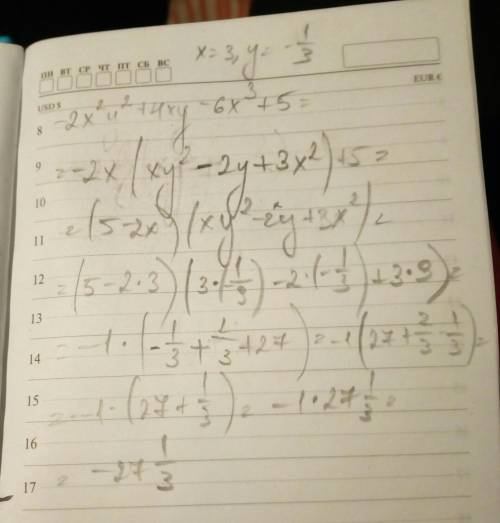 x=3, y=-1/3
ПН ВТ СР ЧТ ПТ СБ ВС
USD $ EUR €
8 -2x²y²+4xy-6x³+5=
9 =-2x(xy²-2y+3x²)+5=
10 =(5-2x)(xy²-2y+3x²)=
11
12 =(5-2·3)(3·(-1/9)-2·(-1/3)+3·9)=
13
14 =-1·(-1/3+1/3+27)=-1(27+2/3-1/3)=
15 =-1·(27+1/3)=-1·27 1/3=
16
17 = -27 1/3